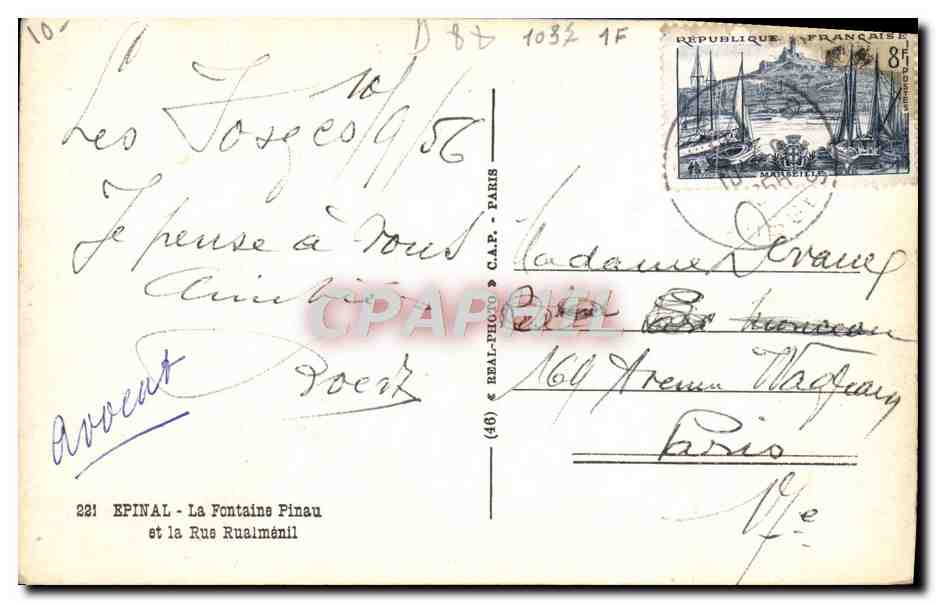 10-
D 88 1032 1F
Les Vosges 10/9/56
Je pense à vous
Poerz
Avocat
221 EPINAL - La Fontaine Pinau
et la Rue Rualménil
(46) « REAL-PHOTO » C.A.P. - PARIS
CPAPHIL
RÉPUBLIQUE FRANÇAISE
8F
POSTES
MARSEILLE
Madame
169 Avenue Wagram
Paris